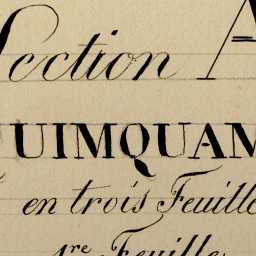 Section A
UIMQUAM
en trois Feuille
1re Feuille